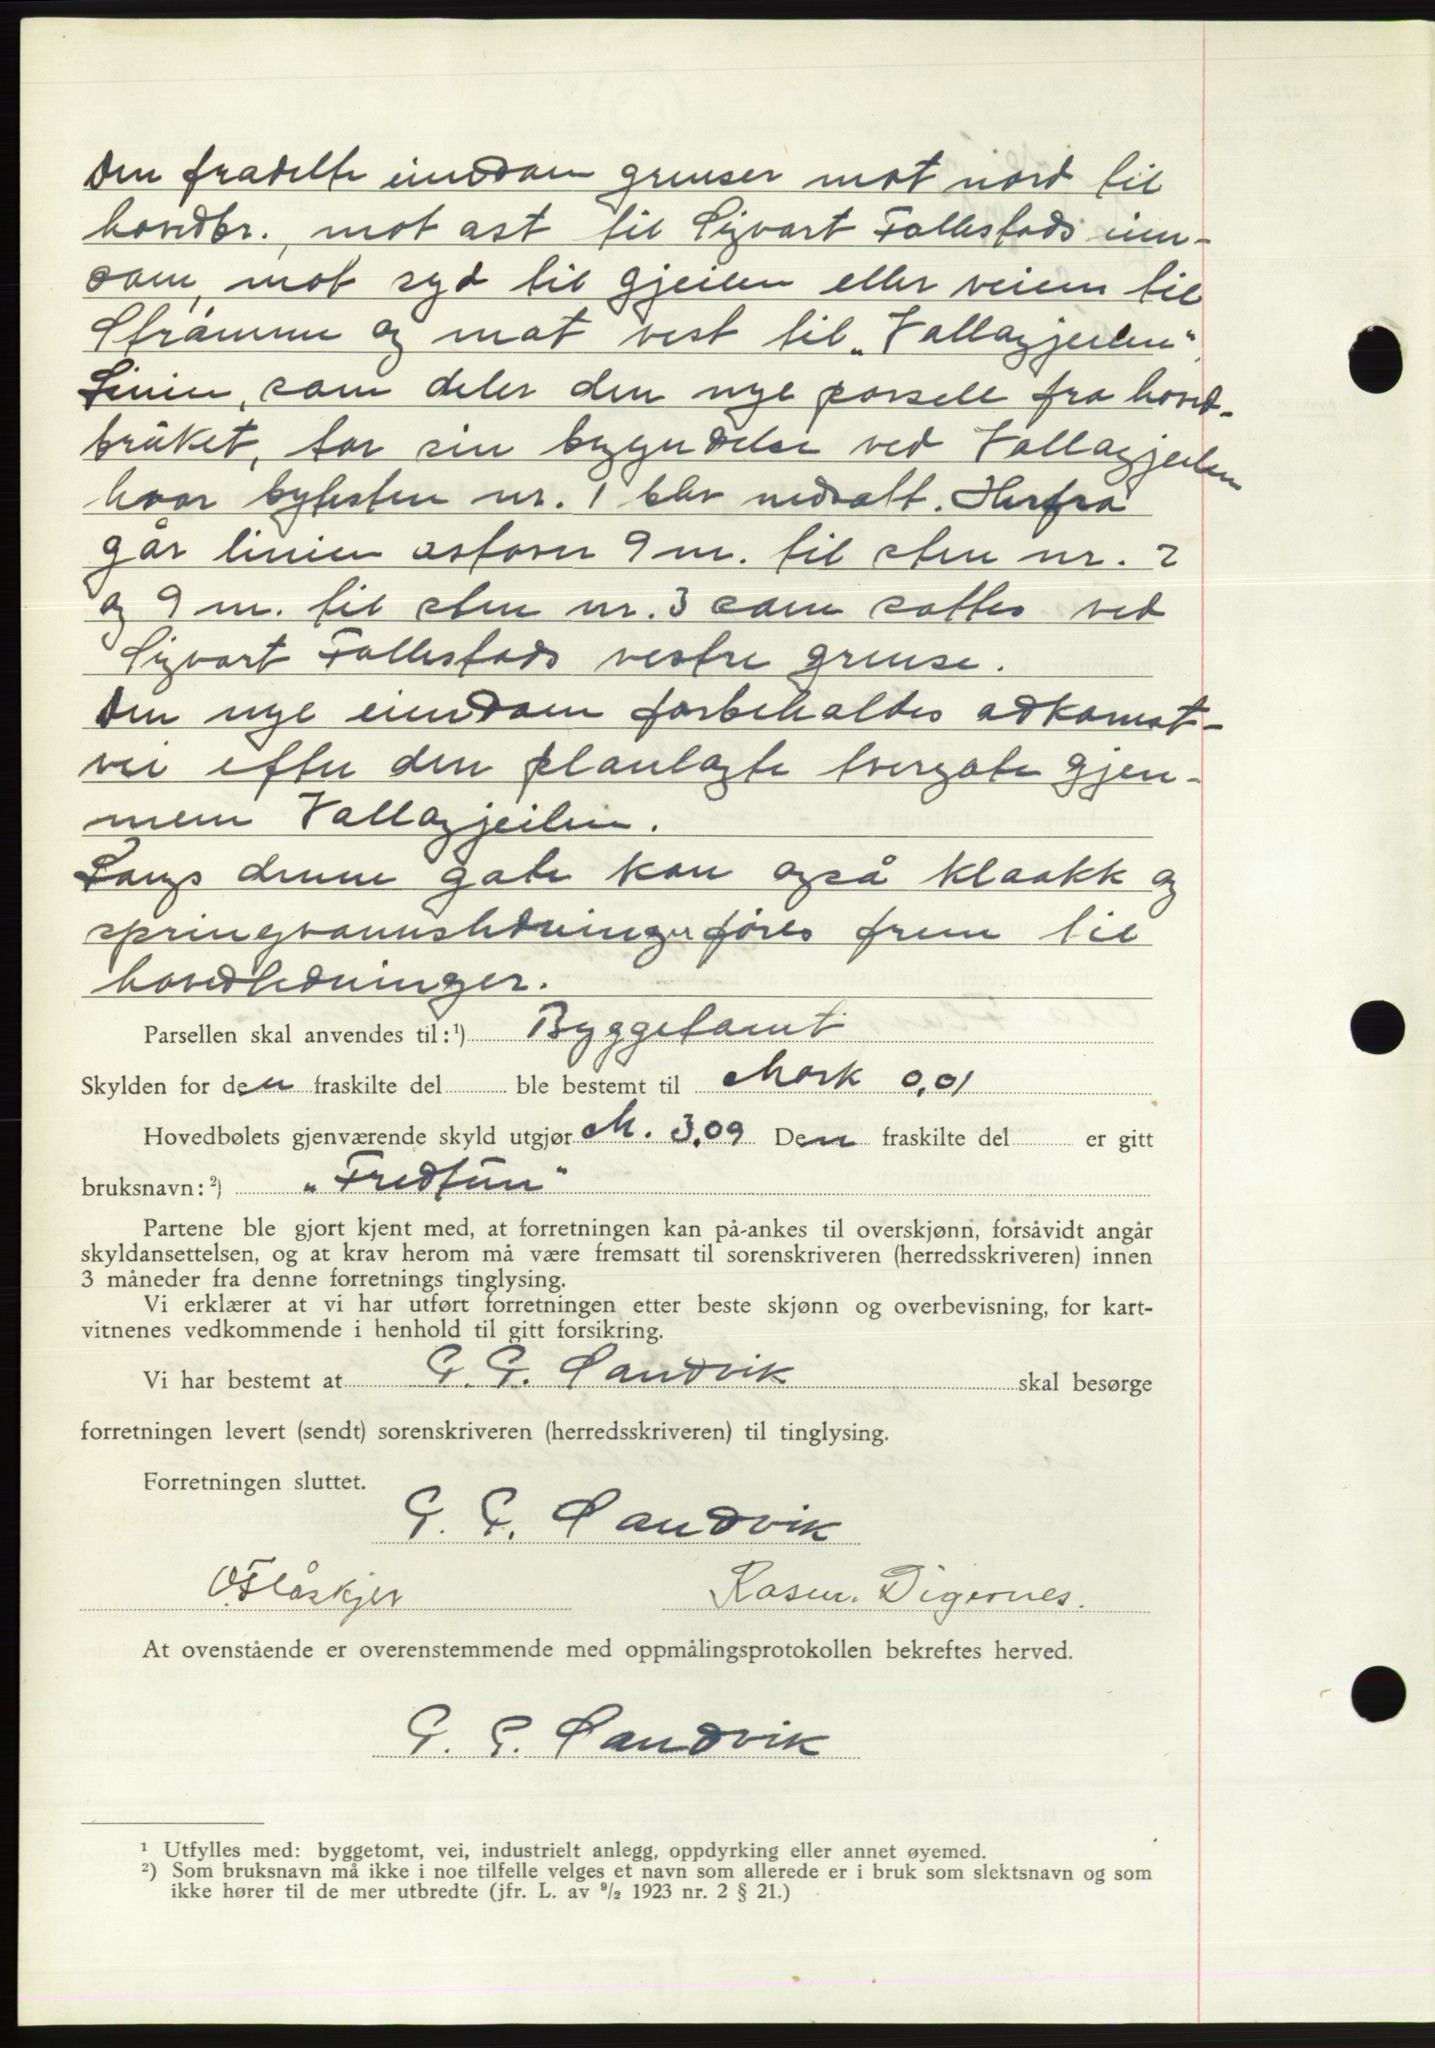 Den fradelte eiendom grenser mot nord til
hovedbr., mot ost til Sigvart Follestads eien-
dom, mot syd til gjeilen eller veien til
Strømme og mot vest til „Vallagjeilen“.
Linien, som deler den nye parsell fra hoved-
brüket, tar sin begyndelse ved Vallagjeilen
hvor bytesten nr. 1 blev nedsatt. Herfra
går linien ostover 9 m. til sten nr. 2
og 9 m. til sten nr. 3 som sattes ved
Sigvart Follestads vestre grense.
Den nye eiendom forbeholdes adkomst-
vei efter den planlagte tvergate gjen-
nem Vallagjeilen.
Langs denne gate kan også kloakk og
springvannsledninger føres frem til
hovedledninger.
Parsellen skal anvendes til:¹) Byggetomt
Skylden for den fraskilte del ble bestemt til Mark 0,01
Hovedbølets gjenværende skyld utgjør M. 3,09 Den fraskilte del er gitt
bruksnavn:²) „Fredtün“
Partene ble gjort kjent med, at forretningen kan på-ankes til overskjønn, forsåvidt angår
skyldansettelsen, og at krav herom må være fremsatt til sorenskriveren (herredsskriveren) innen
3 måneder fra denne forretnings tinglysing.
Vi erklærer at vi har utført forretningen etter beste skjønn og overbevisning, for kart-
vitnenes vedkommende i henhold til gitt forsikring.
Vi har bestemt at G. G. Sandvik skal besørge
forretningen levert (sendt) sorenskriveren (herredsskriveren) til tinglysing.
Forretningen sluttet.
G. G. Sandvik
O. Flåskjer Rasm. Digernes.
At ovenstående er overenstemmende med oppmålingsprotokollen bekreftes herved.
G. G. Sandvik
¹ Utfylles med: byggetomt, vei, industrielt anlegg, oppdyrking eller annet øyemed.
²) Som bruksnavn må ikke i noe tilfelle velges et navn som allerede er i bruk som slektsnavn og som
ikke hører til de mer utbredte (jfr. L. av ⁹/₂ 1923 nr. 2 § 21.)